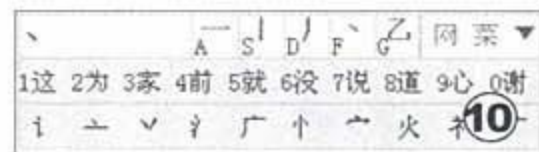 丶 A一 S丨 D丿 F丶 G乙 网 菜 ▼
1这 2为 3家 4前 5就 6没 7说 8道 9心 0谢
讠 亠 丷 氵 广 忄 宀 火 礻 10